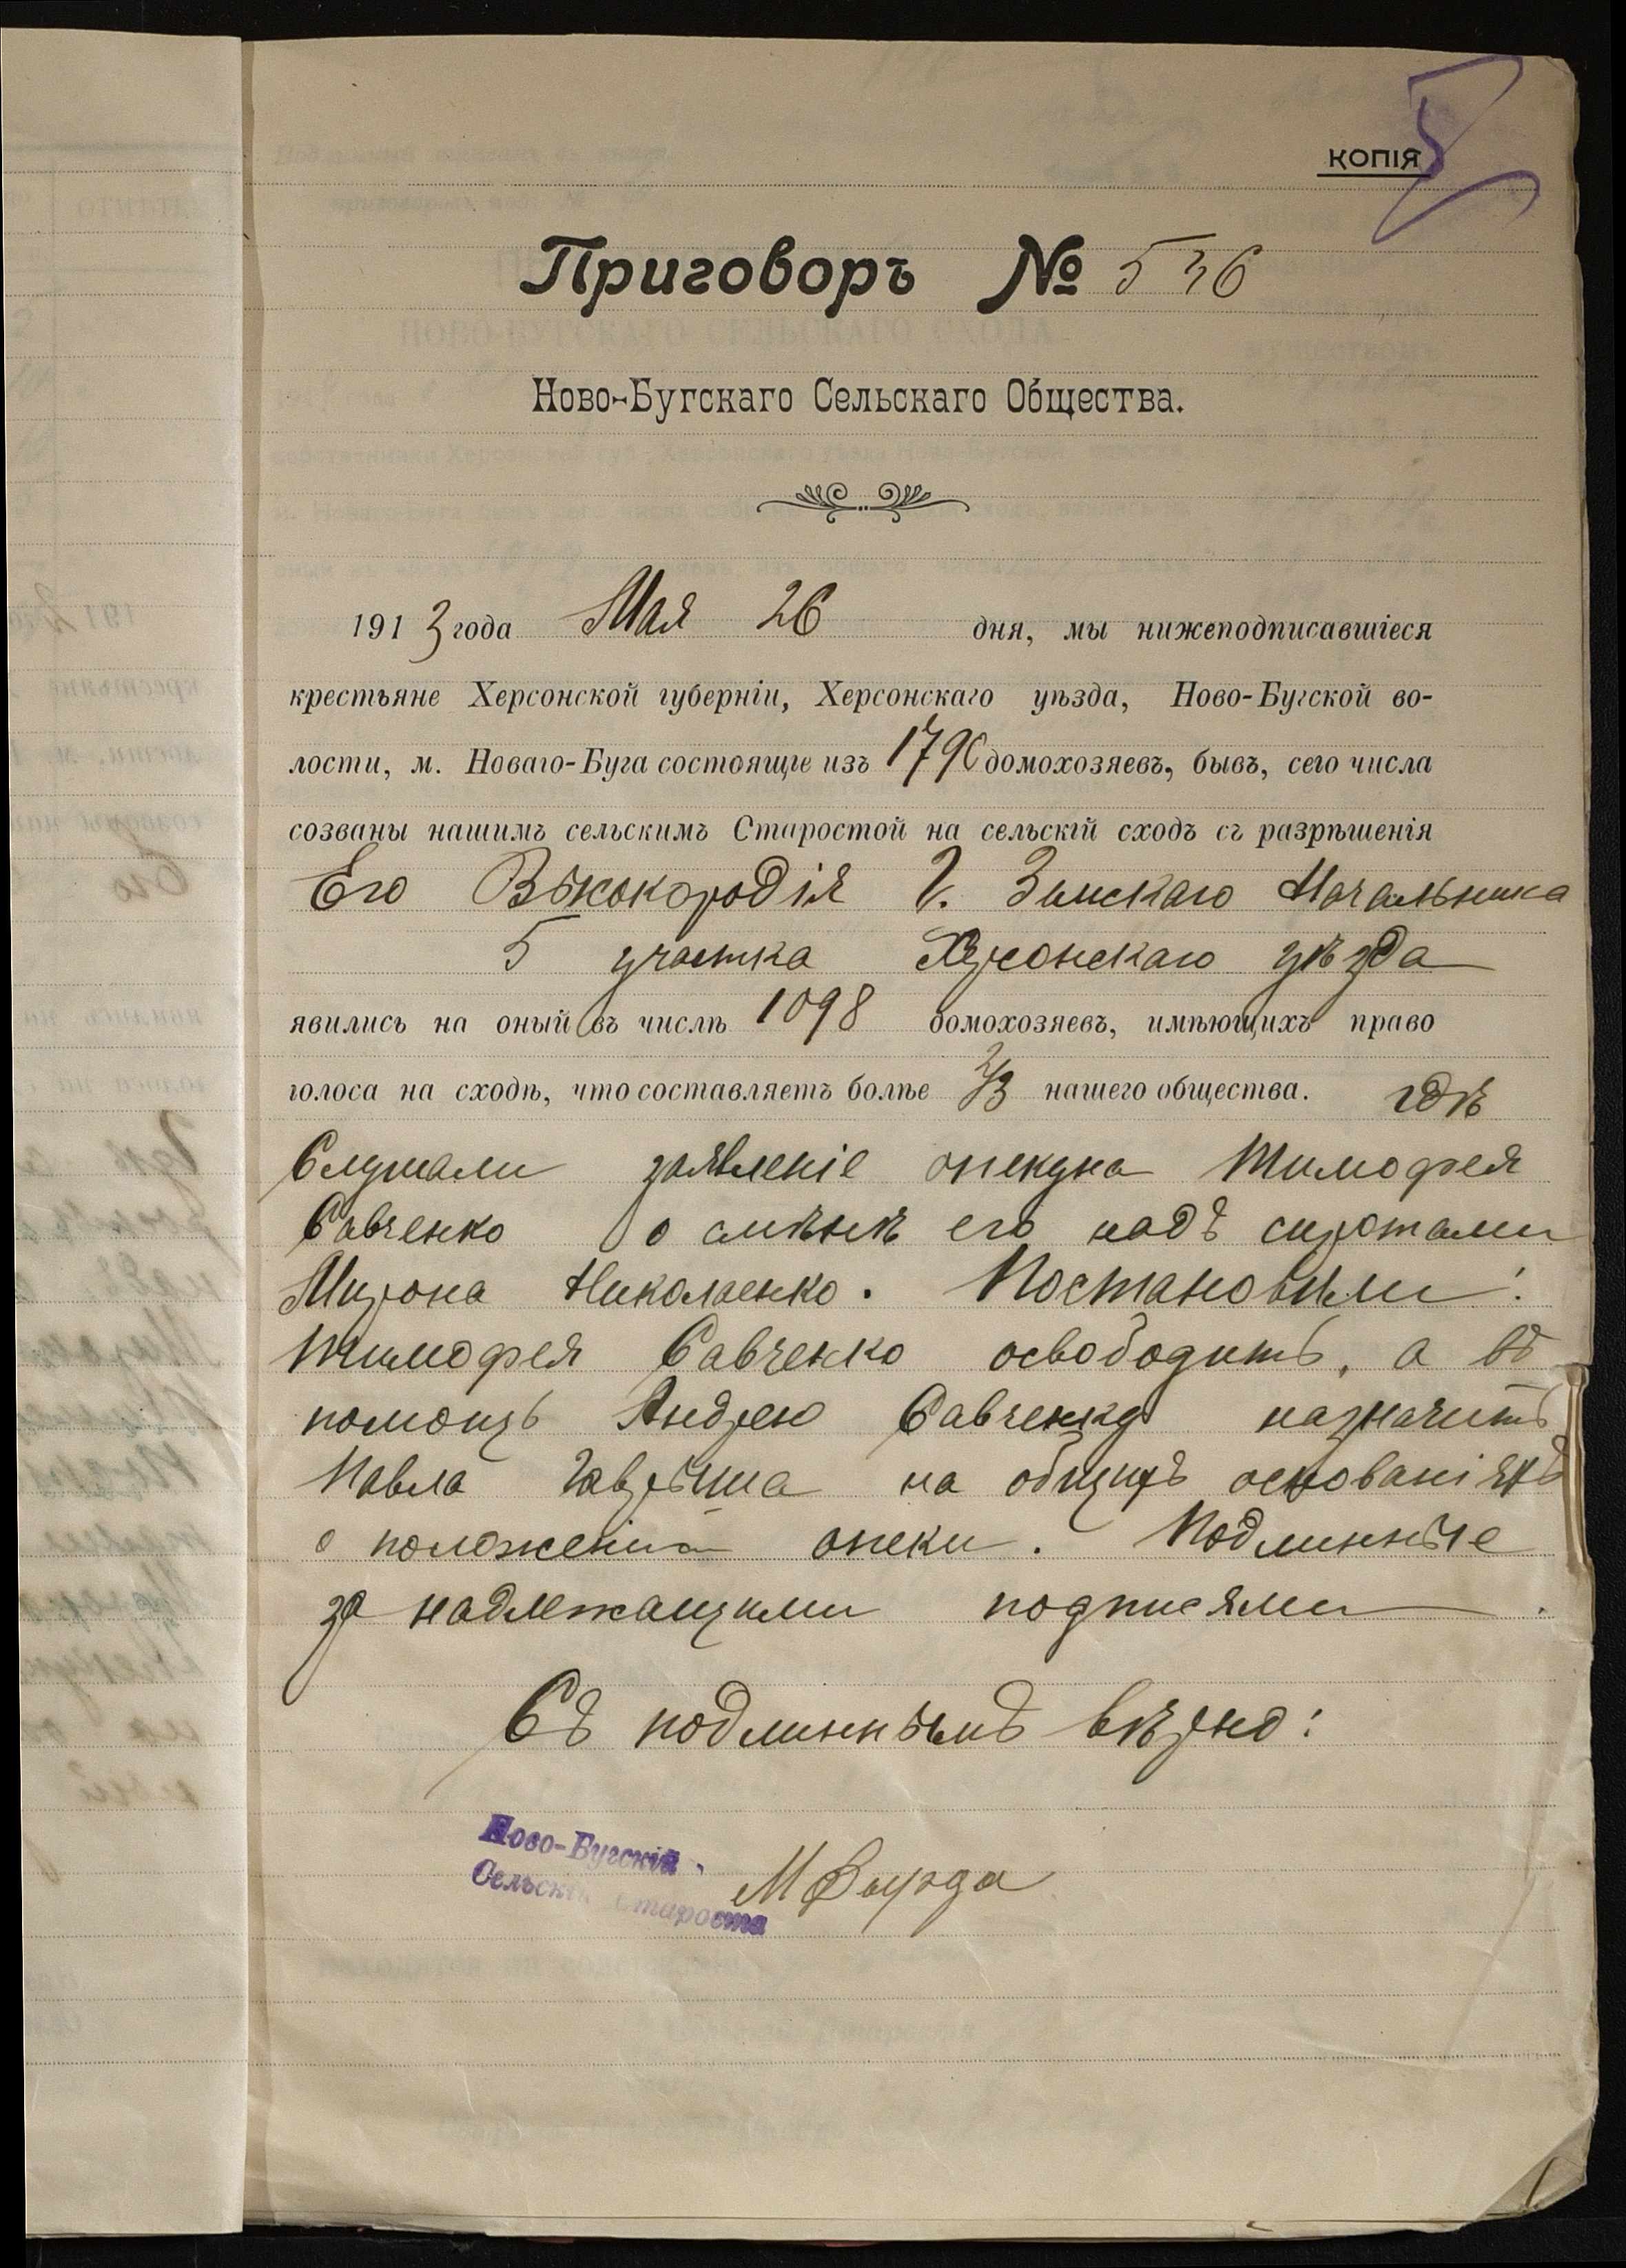 КОПІЯ
Приговоръ № 536
Ново-Бугскаго Сельскаго Общества.
1913 года Мая 26 дня, мы нижеподписавшіеся
крестьяне Херсонской губерніи, Херсонскаго уѣзда, Ново-Бугской во-
лости, м. Новаго-Буга состоящіе изъ 1790 домохозяевъ, бывъ, сего числа
созваны нашимъ сельскимъ Старостой на сельскій сходъ съ разрѣшенія
Его Высокородія Г. Земскаго Начальника
5 участка Херсонскаго уѣзда
явились на оный въ числѣ 1098 домохозяевъ, имѣющихъ право
голоса на сходѣ, что составляетъ болѣе 2/3 нашего общества. гдѣ
Слушали заявленіе опекуна Тимофея
Савченко о смѣнѣ его надъ сиротами
Мирона Николаенко. Постановили:
Тимофея Савченко освободить, а въ
помощь Андрею Савченко назначить
Павла на общихъ основаніяхъ
о положеніи опеки. Подлинные
за надлежащими подписями.
Съ подлиннымъ вѣрно:
Ново-Бугскій
Сельскій Староста